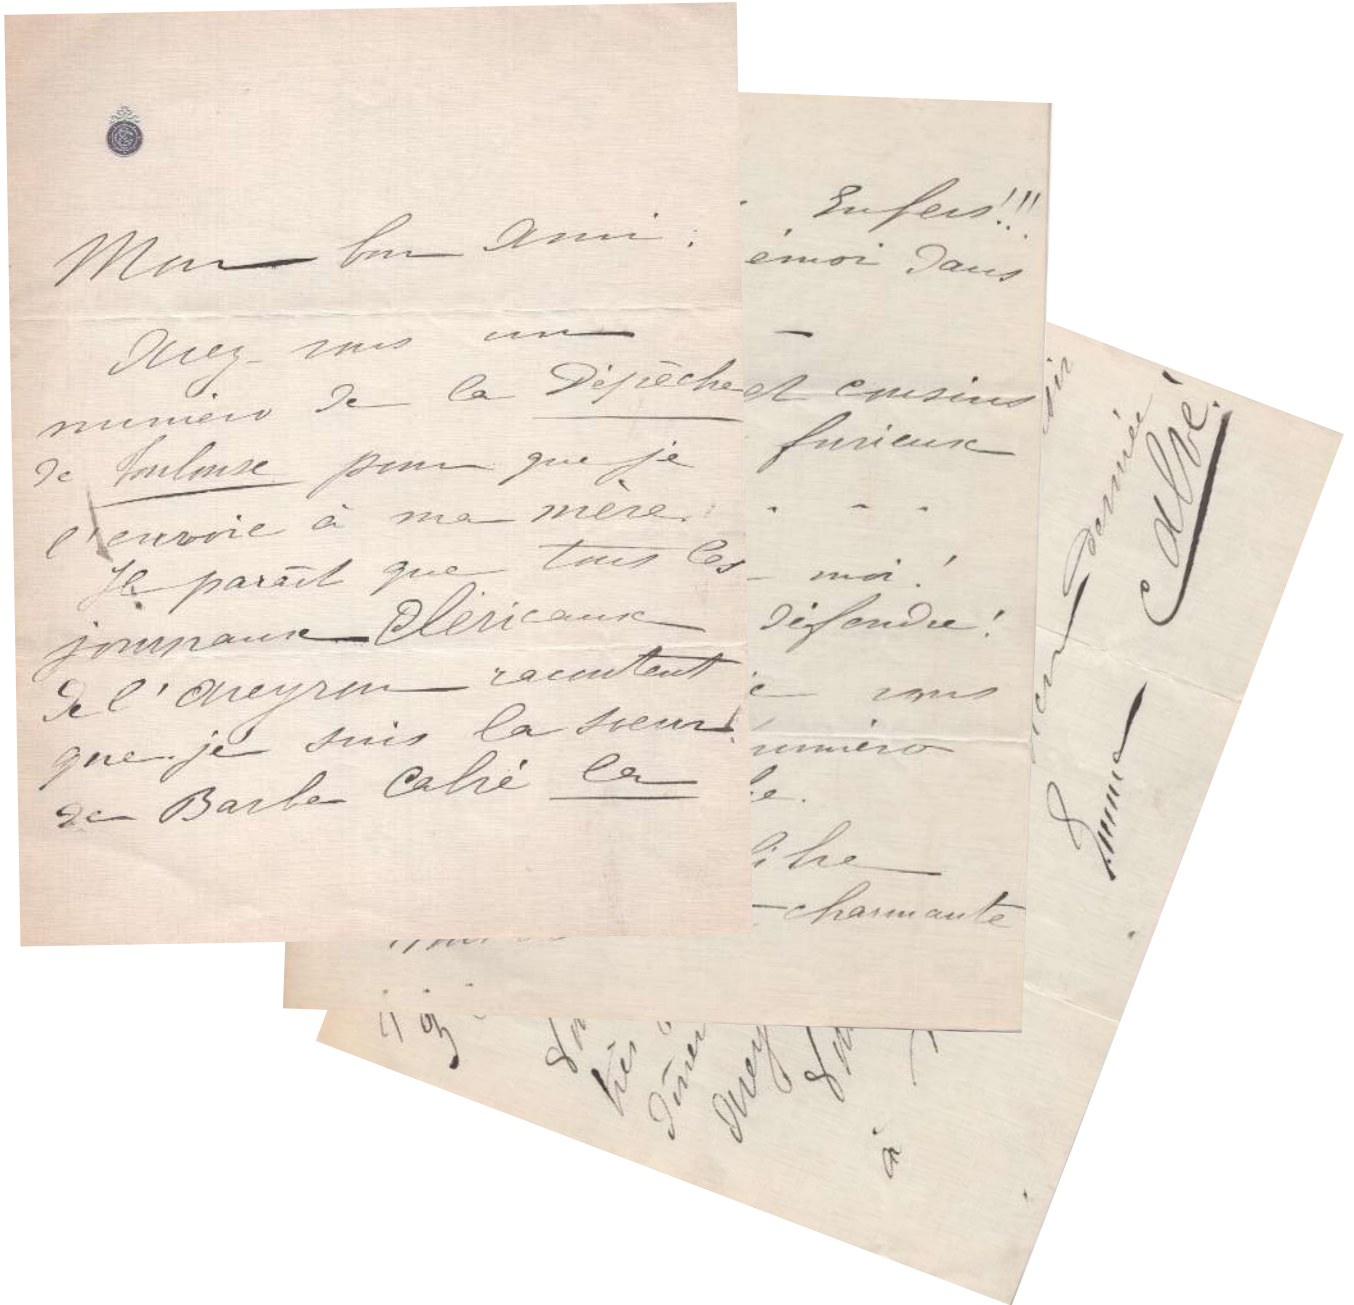 Mon bon Ami :
Avez-vous un
numéro de la Dépêche
de Toulouse pour que je
l'envoie à ma mère.
Il paraît que tous les
journaux Cléricaux
de l'Aveyron racontent
que je suis la soeur
de Barbe Calvé la
Enfers!!!
émoi dans
et cousins
furieux
moi!
défendre!
vous
numéro
libre
charmante
très
dîner
Avez
à
dernier
Emma Calvé!